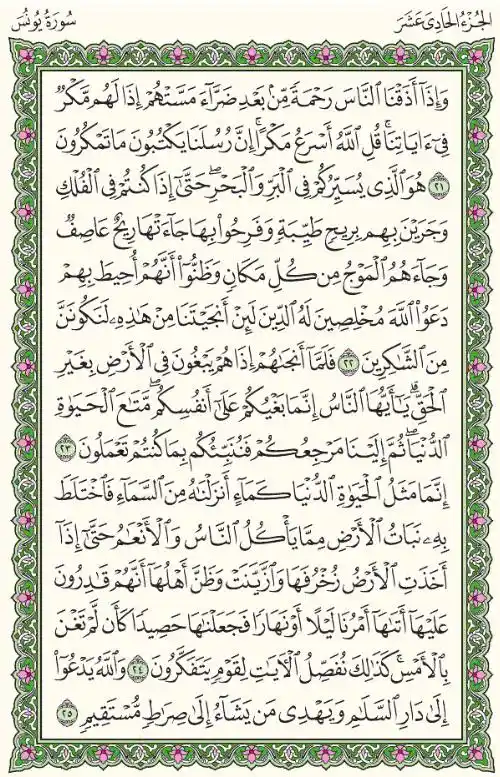 الجُزْءُ الحَادِي عَشَرَ
سُورَةُ يُونُسَ
وَإِذَآ أَذَقْنَا ٱلنَّاسَ رَحْمَةً مِّنۢ بَعْدِ ضَرَّآءَ مَسَّتْهُمْ إِذَا لَهُم مَّكْرٌ
فِىٓ ءَايَاتِنَا ۚ قُلِ ٱللَّهُ أَسْرَعُ مَكْرًا ۚ إِنَّ رُسُلَنَا يَكْتُبُونَ مَا تَمْكُرُونَ
٢١ هُوَ ٱلَّذِى يُسَيِّرُكُمْ فِى ٱلْبَرِّ وَٱلْبَحْرِ ۖ حَتَّىٰٓ إِذَا كُنتُمْ فِى ٱلْفُلْكِ
وَجَرَيْنَ بِهِم بِرِيحٍ طَيِّبَةٍ وَفَرِحُوا۟ بِهَا جَآءَتْهَا رِيحٌ عَاصِفٌ
وَجَآءَهُمُ ٱلْمَوْجُ مِن كُلِّ مَكَانٍ وَظَنُّوٓا۟ أَنَّهُمْ أُحِيطَ بِهِمْ
دَعَوُا۟ ٱللَّهَ مُخْلِصِينَ لَهُ ٱلدِّينَ لَئِنْ أَنجَيْتَنَا مِنْ هَٰذِهِۦ لَنَكُونَنَّ
مِنَ ٱلشَّٰكِرِينَ ٢٢ فَلَمَّآ أَنجَىٰهُمْ إِذَا هُمْ يَبْغُونَ فِى ٱلْأَرْضِ بِغَيْرِ
ٱلْحَقِّ ۗ يَٰٓأَيُّهَا ٱلنَّاسُ إِنَّمَا بَغْيُكُمْ عَلَىٰٓ أَنفُسِكُم ۖ مَّتَٰعَ ٱلْحَيَوٰةِ
ٱلدُّنْيَا ۖ ثُمَّ إِلَيْنَا مَرْجِعُكُمْ فَنُنَبِّئُكُم بِمَا كُنتُمْ تَعْمَلُونَ ٢٣
إِنَّمَا مَثَلُ ٱلْحَيَوٰةِ ٱلدُّنْيَا كَمَآءٍ أَنزَلْنَٰهُ مِنَ ٱلسَّمَآءِ فَٱخْتَلَطَ
بِهِۦ نَبَاتُ ٱلْأَرْضِ مِمَّا يَأْكُلُ ٱلنَّاسُ وَٱلْأَنْعَٰمُ حَتَّىٰٓ إِذَآ
أَخَذَتِ ٱلْأَرْضُ زُخْرُفَهَا وَٱزَّيَّنَتْ وَظَنَّ أَهْلُهَآ أَنَّهُمْ قَٰدِرُونَ
عَلَيْهَآ أَتَىٰهَآ أَمْرُنَا لَيْلًا أَوْ نَهَارًا فَجَعَلْنَٰهَا حَصِيدًا كَأَن لَّمْ تَغْنَ
بِٱلْأَمْسِ ۚ كَذَٰلِكَ نُفَصِّلُ ٱلْءَايَٰتِ لِقَوْمٍ يَتَفَكَّرُونَ ٢٤ وَٱللَّهُ يَدْعُوٓا۟
إِلَىٰ دَارِ ٱلسَّلَٰمِ وَيَهْدِى مَن يَشَآءُ إِلَىٰ صِرَٰطٍ مُّسْتَقِيمٍ ٢٥